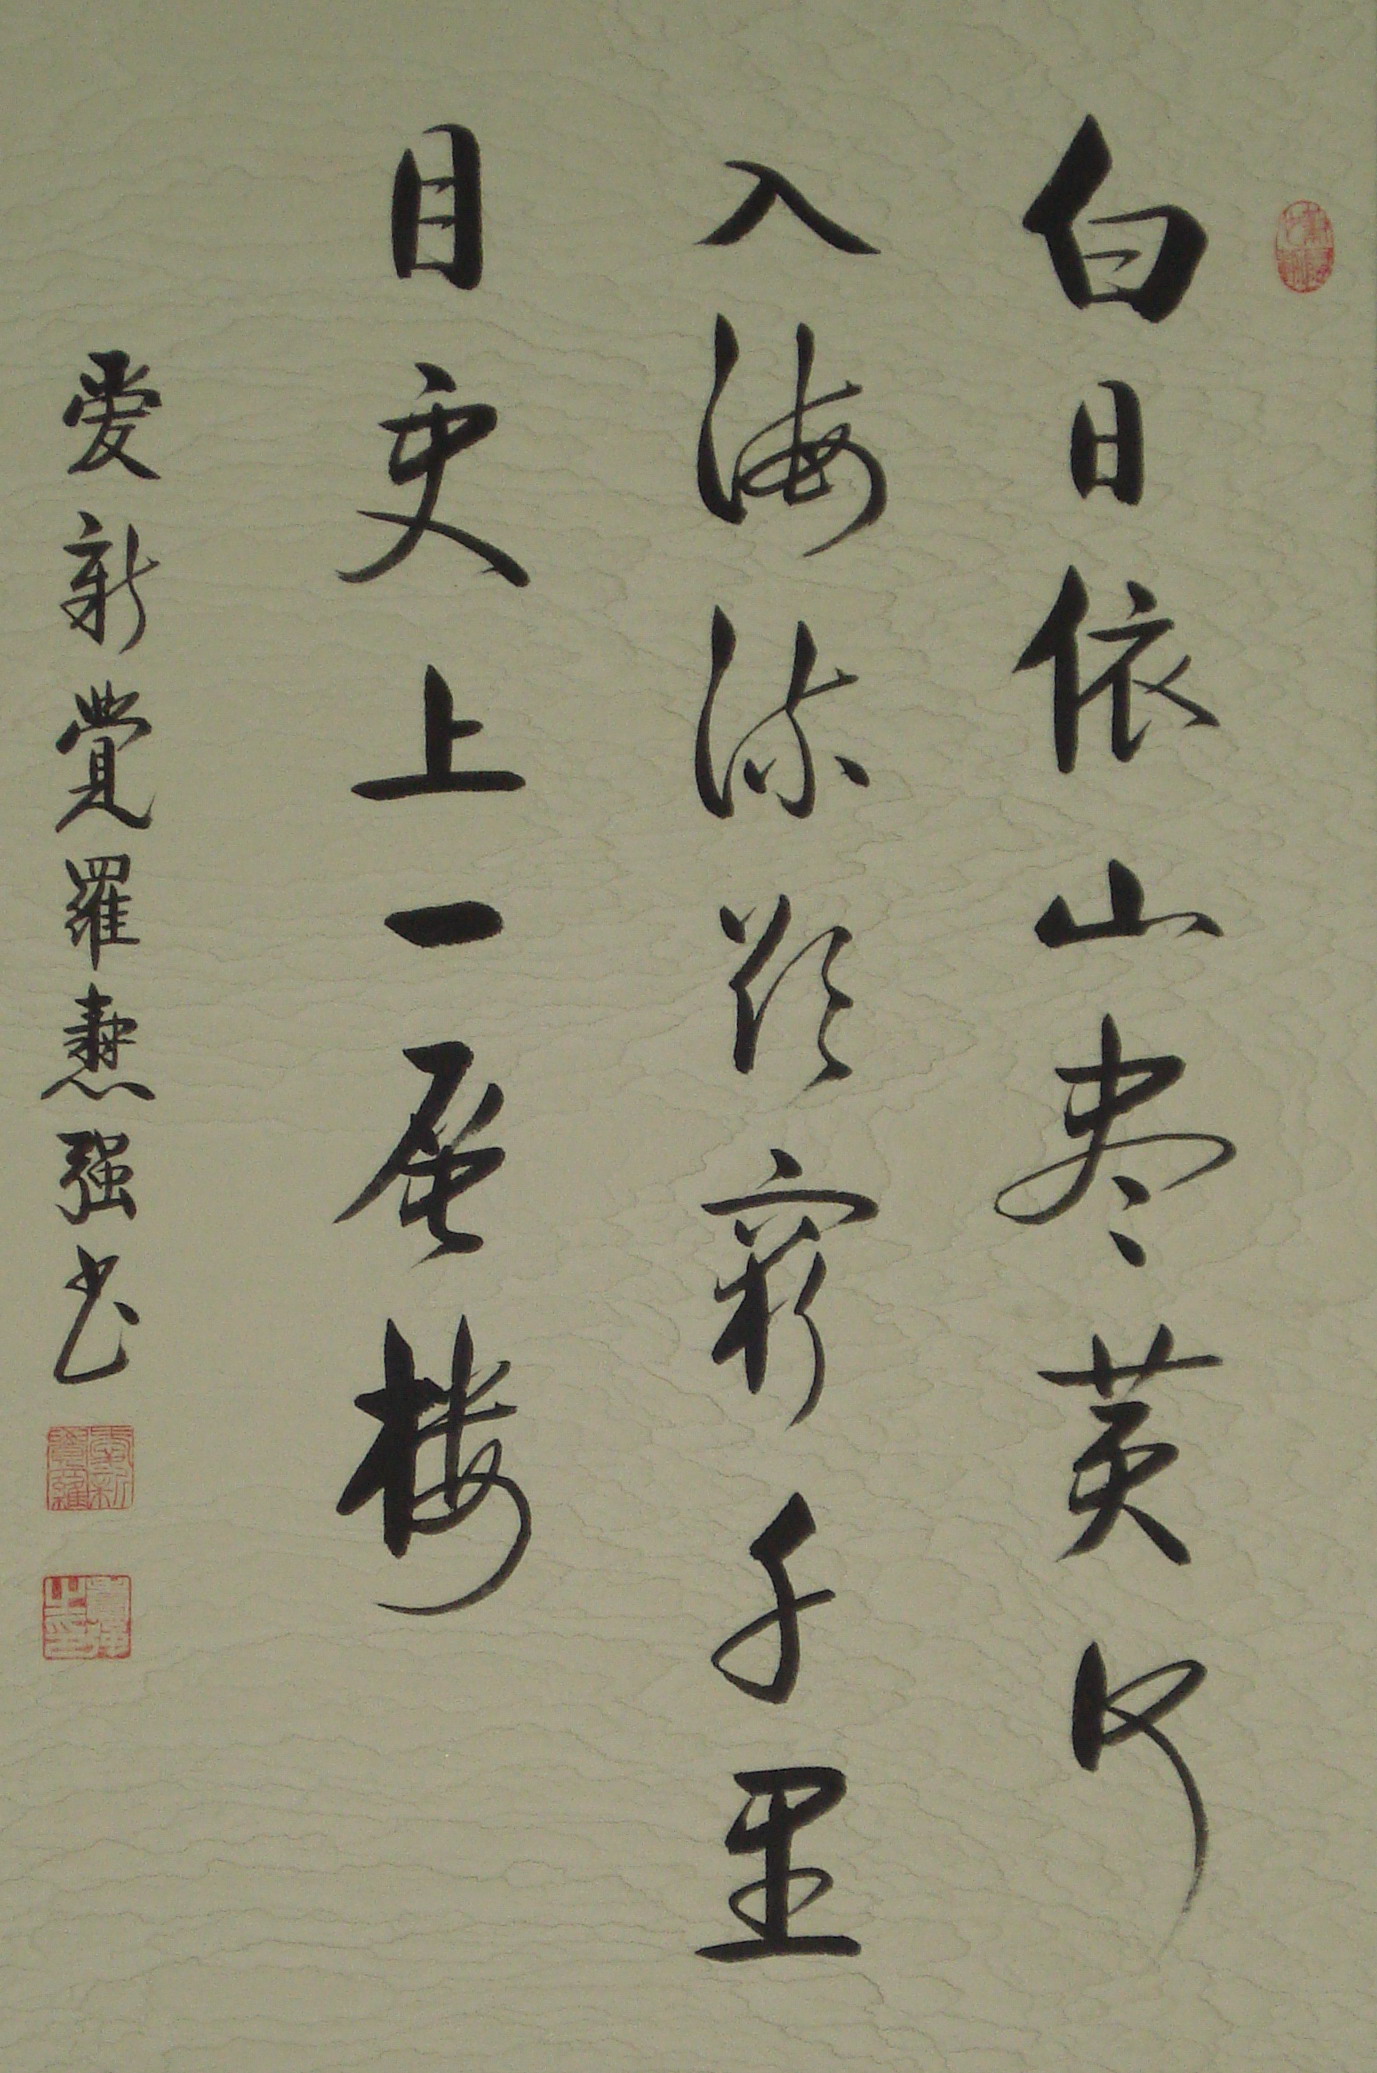 白日依山尽黄河
入海流欲穷千里
目更上一层楼
爱新觉罗焘强书
爱新觉罗